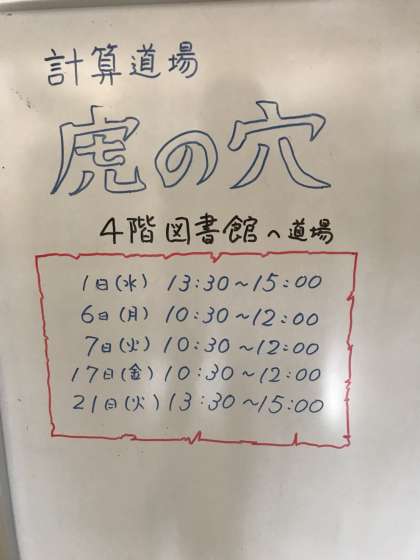 計算道場
虎の穴
4階図書館へ道場
1日(水) 13:30~15:00
6日(月) 10:30~12:00
7日(火) 10:30~12:00
17日(金) 10:30~12:00
21日(火) 13:30~15:00